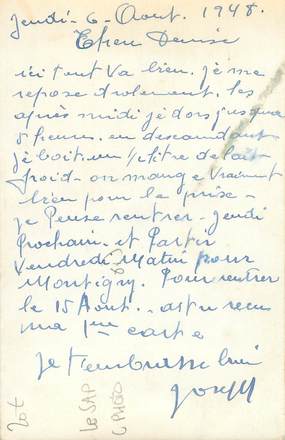 Jeudi - 6 - Aout. 1948.
Chere Denise
ici tout va bien. je me
repose drolement. les
après midi je dors jusqua
5 heures. en descendant
je boit un ½ litre de lait
froid - on mange vraiment
bien pour le prix -
je Pense rentrer - Jeudi
Prochain - et Partir
Vendredi Matin pour
Montigny. Pour rentrer
le 15 Aout. - as tu recu
ma 1ere carte
je t'embrasse bien
Joseph
20 F
Le SAP